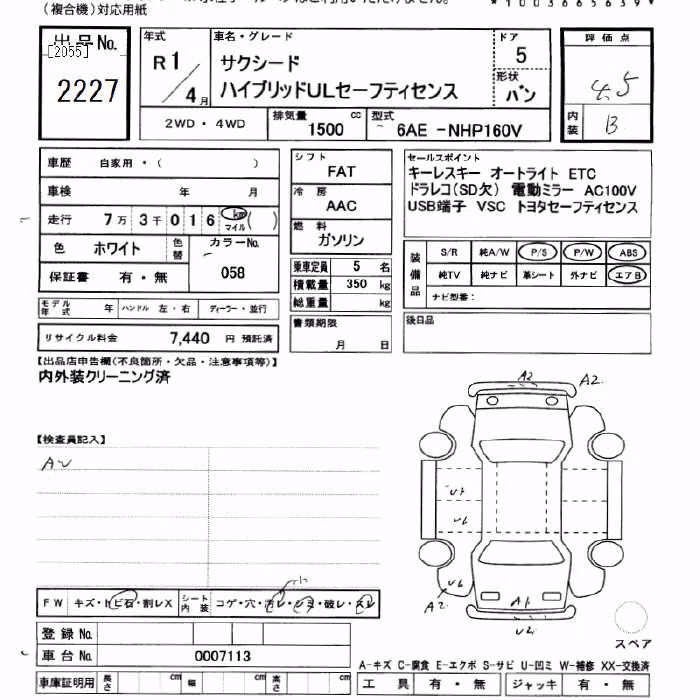 (複合機)対応用紙
*1003665639*
出品No.
[2055]
2227
年式
R1/4月
車名・グレード
サクシード
ハイブリッドULセーフティセンス
ドア
5
形状
バン
2WD・4WD
排気量
1500 cc
型式
6AE -NHP160V
評価点
4.5
内装
B
車歴 自家用・( )
車検 年 月
走行 7万3千016 km マイル ( )
色 ホワイト 色替
カラーNo.
058
保証書 有・無
モデル年式 年 ハンドル 左・右 ディーラー・並行
リサイクル料金 7,440 円 預託済
シフト
FAT
冷房
AAC
燃料
ガソリン
乗車定員 5 名
積載量 350 kg
総重量 kg
書類期限
月 日
セールスポイント
キーレスキー オートライト ETC
ドラレコ(SD欠) 電動ミラー AC100V
USB端子 VSC トヨタセーフティセンス
装備品
S/R 純A/W P/S P/W ABS
純TV 純ナビ 革シート 外ナビ エアB
ナビ型番:
後日品
【出品店申告欄(不良箇所・欠品・注意事項等)】
内外装クリーニング済
【検査員記入】
A2
A2
U1
U2
A2
A1
U2
スペア
FW キズ・トビ石・割レX
シート内装 コゲ・穴・汚レ・シミ・破レ・スレ
登録No.
車台No. 0007113
車庫証明用 長さ cm 幅 cm 高さ cm
A-キズ C-腐食 E-エクボ S-サビ U-凹ミ W-補修 XX-交換済
工具 有・無 ジャッキ 有・無